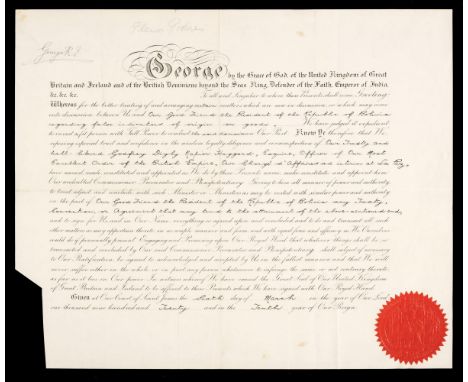 George R.I.
George by the Grace of God, of the United Kingdom of Great
Britain and Ireland and of the British Dominions beyond the Seas King, Defender of the Faith, Emperor of India,
&c. &c. &c. To all and Singular to whom these Presents shall come, Greeting:
Whereas for the better treating of and arranging certain matters which are now in discussion, or which may come
into discussion between Us and Our Good Friend the President of the Republic of Bolivia
regarding false indication of origin on goods, We have judged it expedient
to invest a fit person with Full Power to conduct the said discussion on Our Part. Know Ye therefore that We
reposing especial trust and confidence in the wisdom loyalty diligence and circumspection of Our Trusty and
Well-beloved Godfrey Digby Napier Haggard, Esquire, Officer of Our Most
Excellent Order of the British Empire, Our Chargé d'Affaires ad interim at La Paz,
have named, made, constituted and appointed as We do by these Presents name, make, constitute and appoint him
Our undoubted Commissioner Procurator and Plenipotentiary Giving to him all manner of power and authority
to treat adjust and conclude with such Minister or Ministers as may be vested with similar power and authority
on the part of Our Good Friend the President of the Republic of Bolivia any Treaty,
Convention or Agreement that may tend to the attainment of the above-mentioned end,
and to sign for Us and in Our Name everything so agreed upon and concluded and to do and transact all such
other matters as may appertain thereto in as ample manner and form and with equal force and efficacy as We Ourselves
could do if personally present Engaging and Promising upon Our Royal Word that whatever things shall be so
transacted and concluded by Our said Commissioner Procurator and Plenipotentiary shall subject if necessary
to Our Ratification be agreed to acknowledged and accepted by Us in the fullest manner and that We will
never suffer either in the whole or in part any person whatsoever to infringe the same or act contrary thereto
as far as it lies in Our power. In witness whereof We have caused the Great Seal of Our United Kingdom
of Great Britain and Ireland to be affixed to these Presents which We have signed with Our Royal Hand.
Given at Our Court of Saint James the day of March in the year of Our Lord
one thousand nine hundred and Twenty and in the Tenth year of Our Reign.